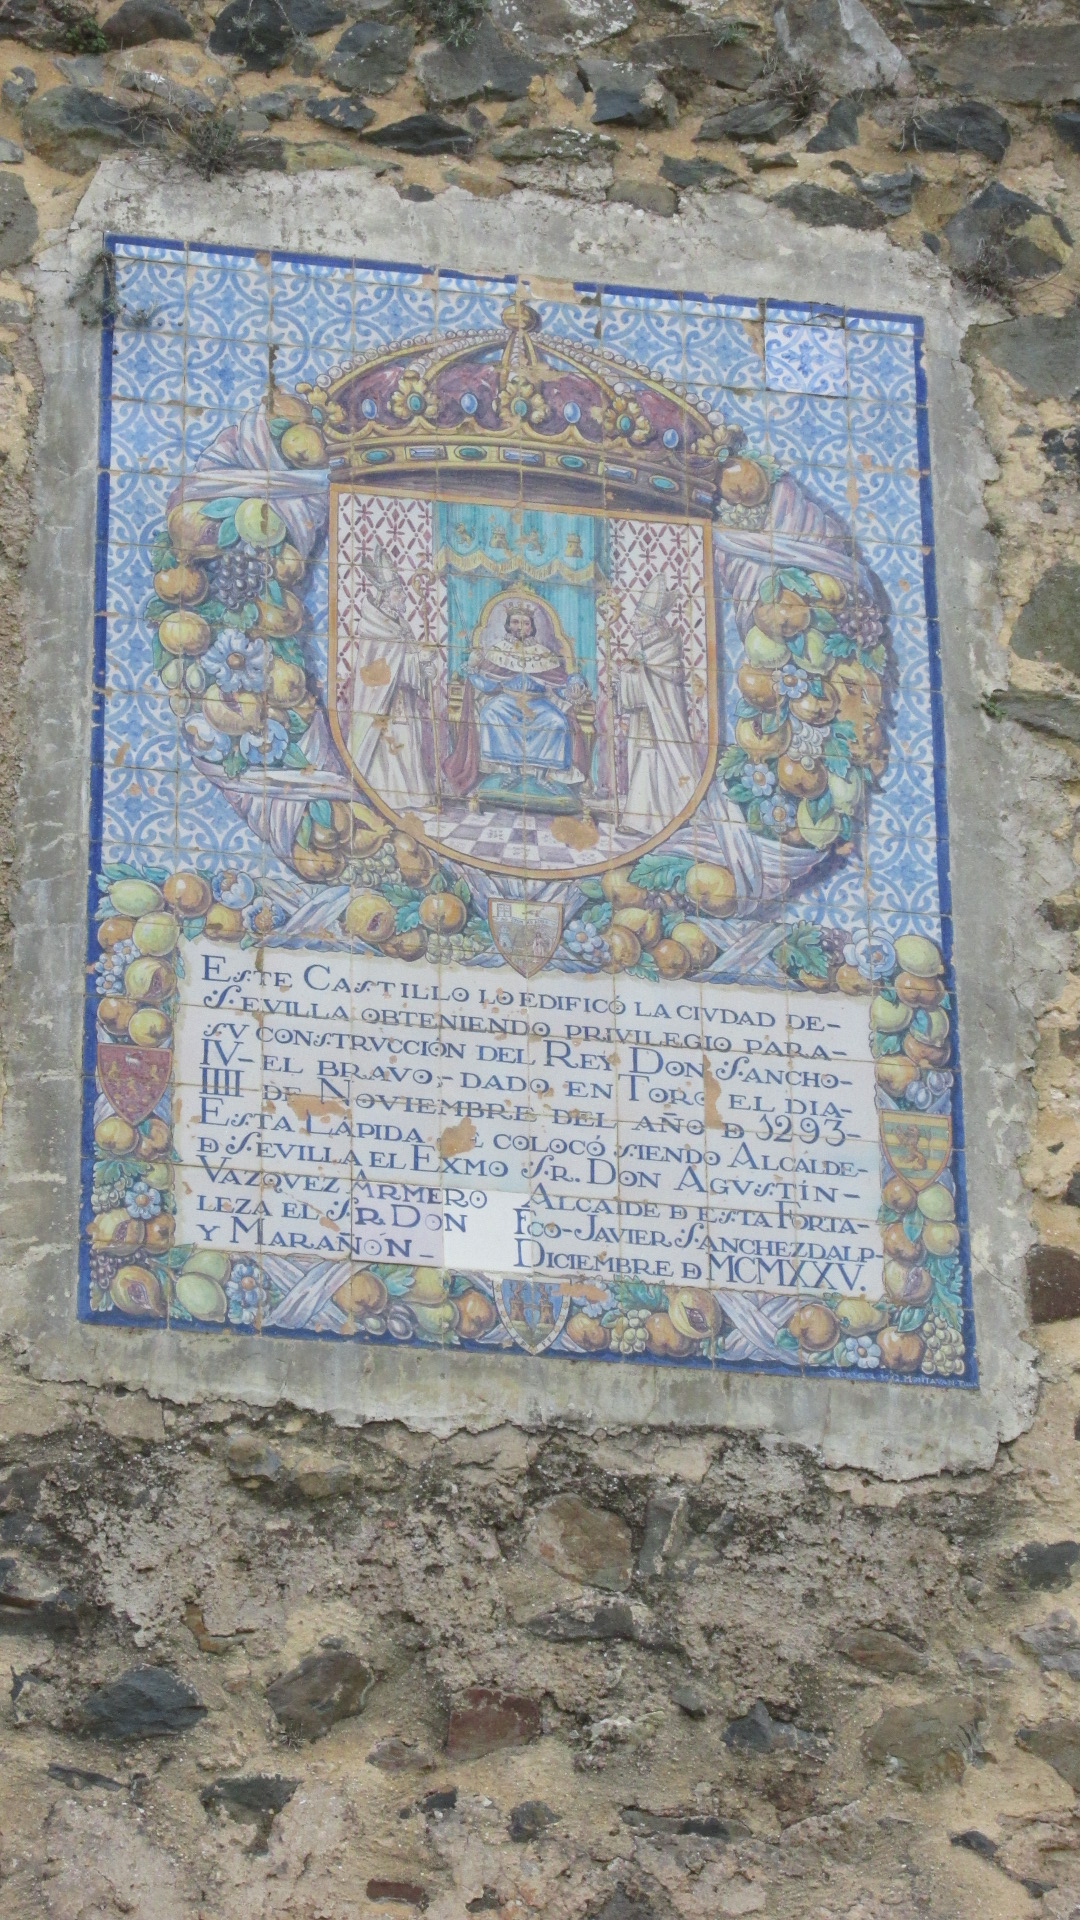 ESTE CASTILLO LO EDIFICÓ LA CIVDAD DE-
SEVILLA OBTENIENDO PRIVILEGIO PARA-
SV CONSTRVCCIÓN DEL REY DON SANCHO-
IV- EL BRAVO,- DADO EN TORO EL DIA-
IIII DE NOVIEMBRE DEL AÑO D 1293-
ESTA LÁPIDA SE COLOCÓ SIENDO ALCALDE-
D SEVILLA EL EXMO SR. DON AGVSTÍN-
VAZQVEZ ARMERO ALCAIDE D ESTA FORTA-
LEZA EL SR. DON FCO-JAVIER SANCHEZDALP-
Y MARAÑÓN- DICIEMBRE D MCMXXV.